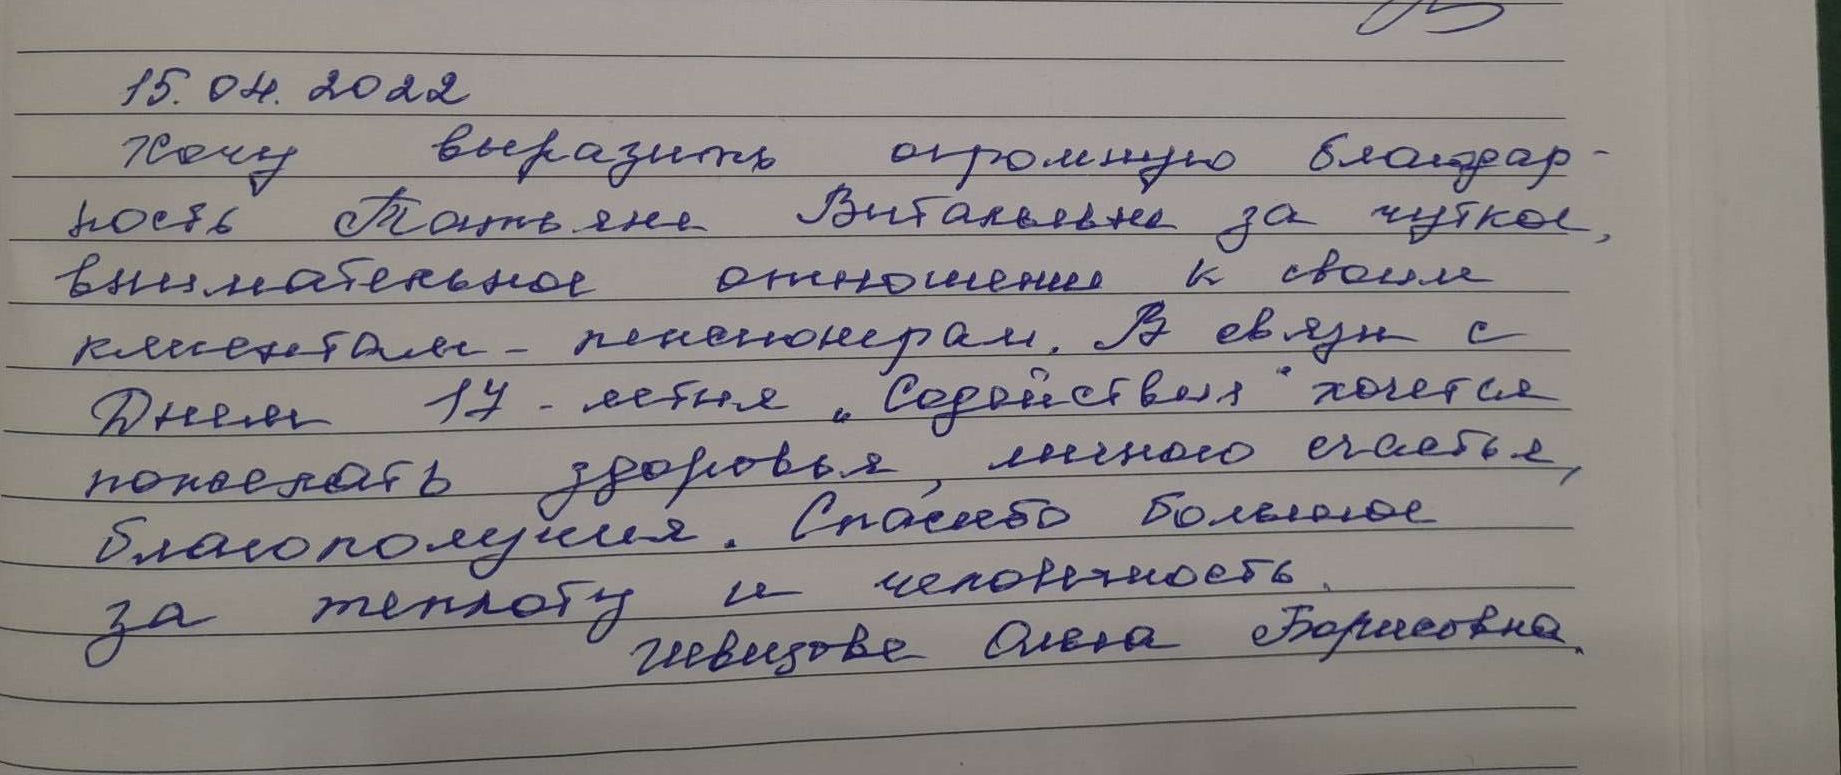 15.04.2022
Хочу выразить огромную благодар-
ность Татьяне Витальевне за чуткое,
внимательное отношение к своим
клиентам - пенсионерам. В связи с
Днем 17-летия „Содействия" хочется
пожелать здоровья, личного счастья,
благополучия. Спасибо большое
за теплоту и человечность.
Олена Борисовна.